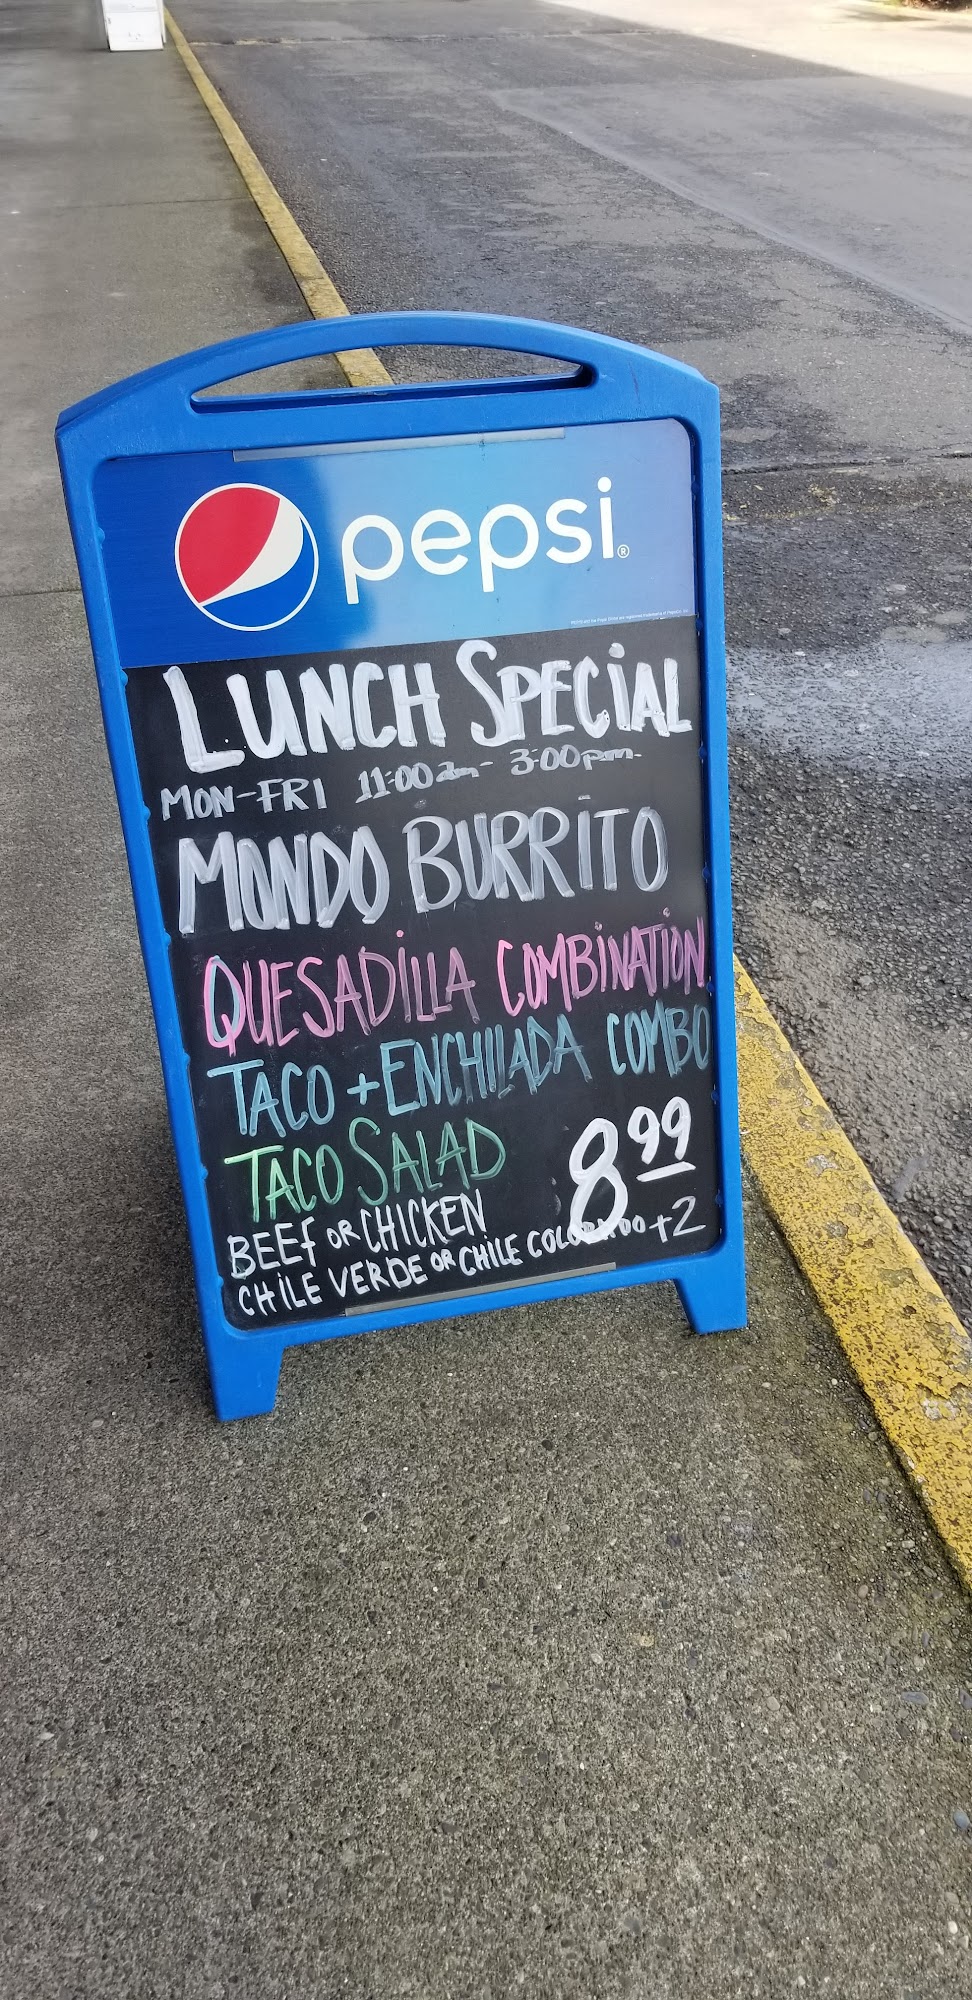 pepsi®
LUNCH SPECIAL
MON-FRI 11:00am- 3:00pm
MONDO BURRITO
QUESADILLA COMBINATION
TACO + ENCHILADA COMBO
TACO SALAD 8.99
BEEF OR CHICKEN
CHILE VERDE OR CHILE COLORADO +2